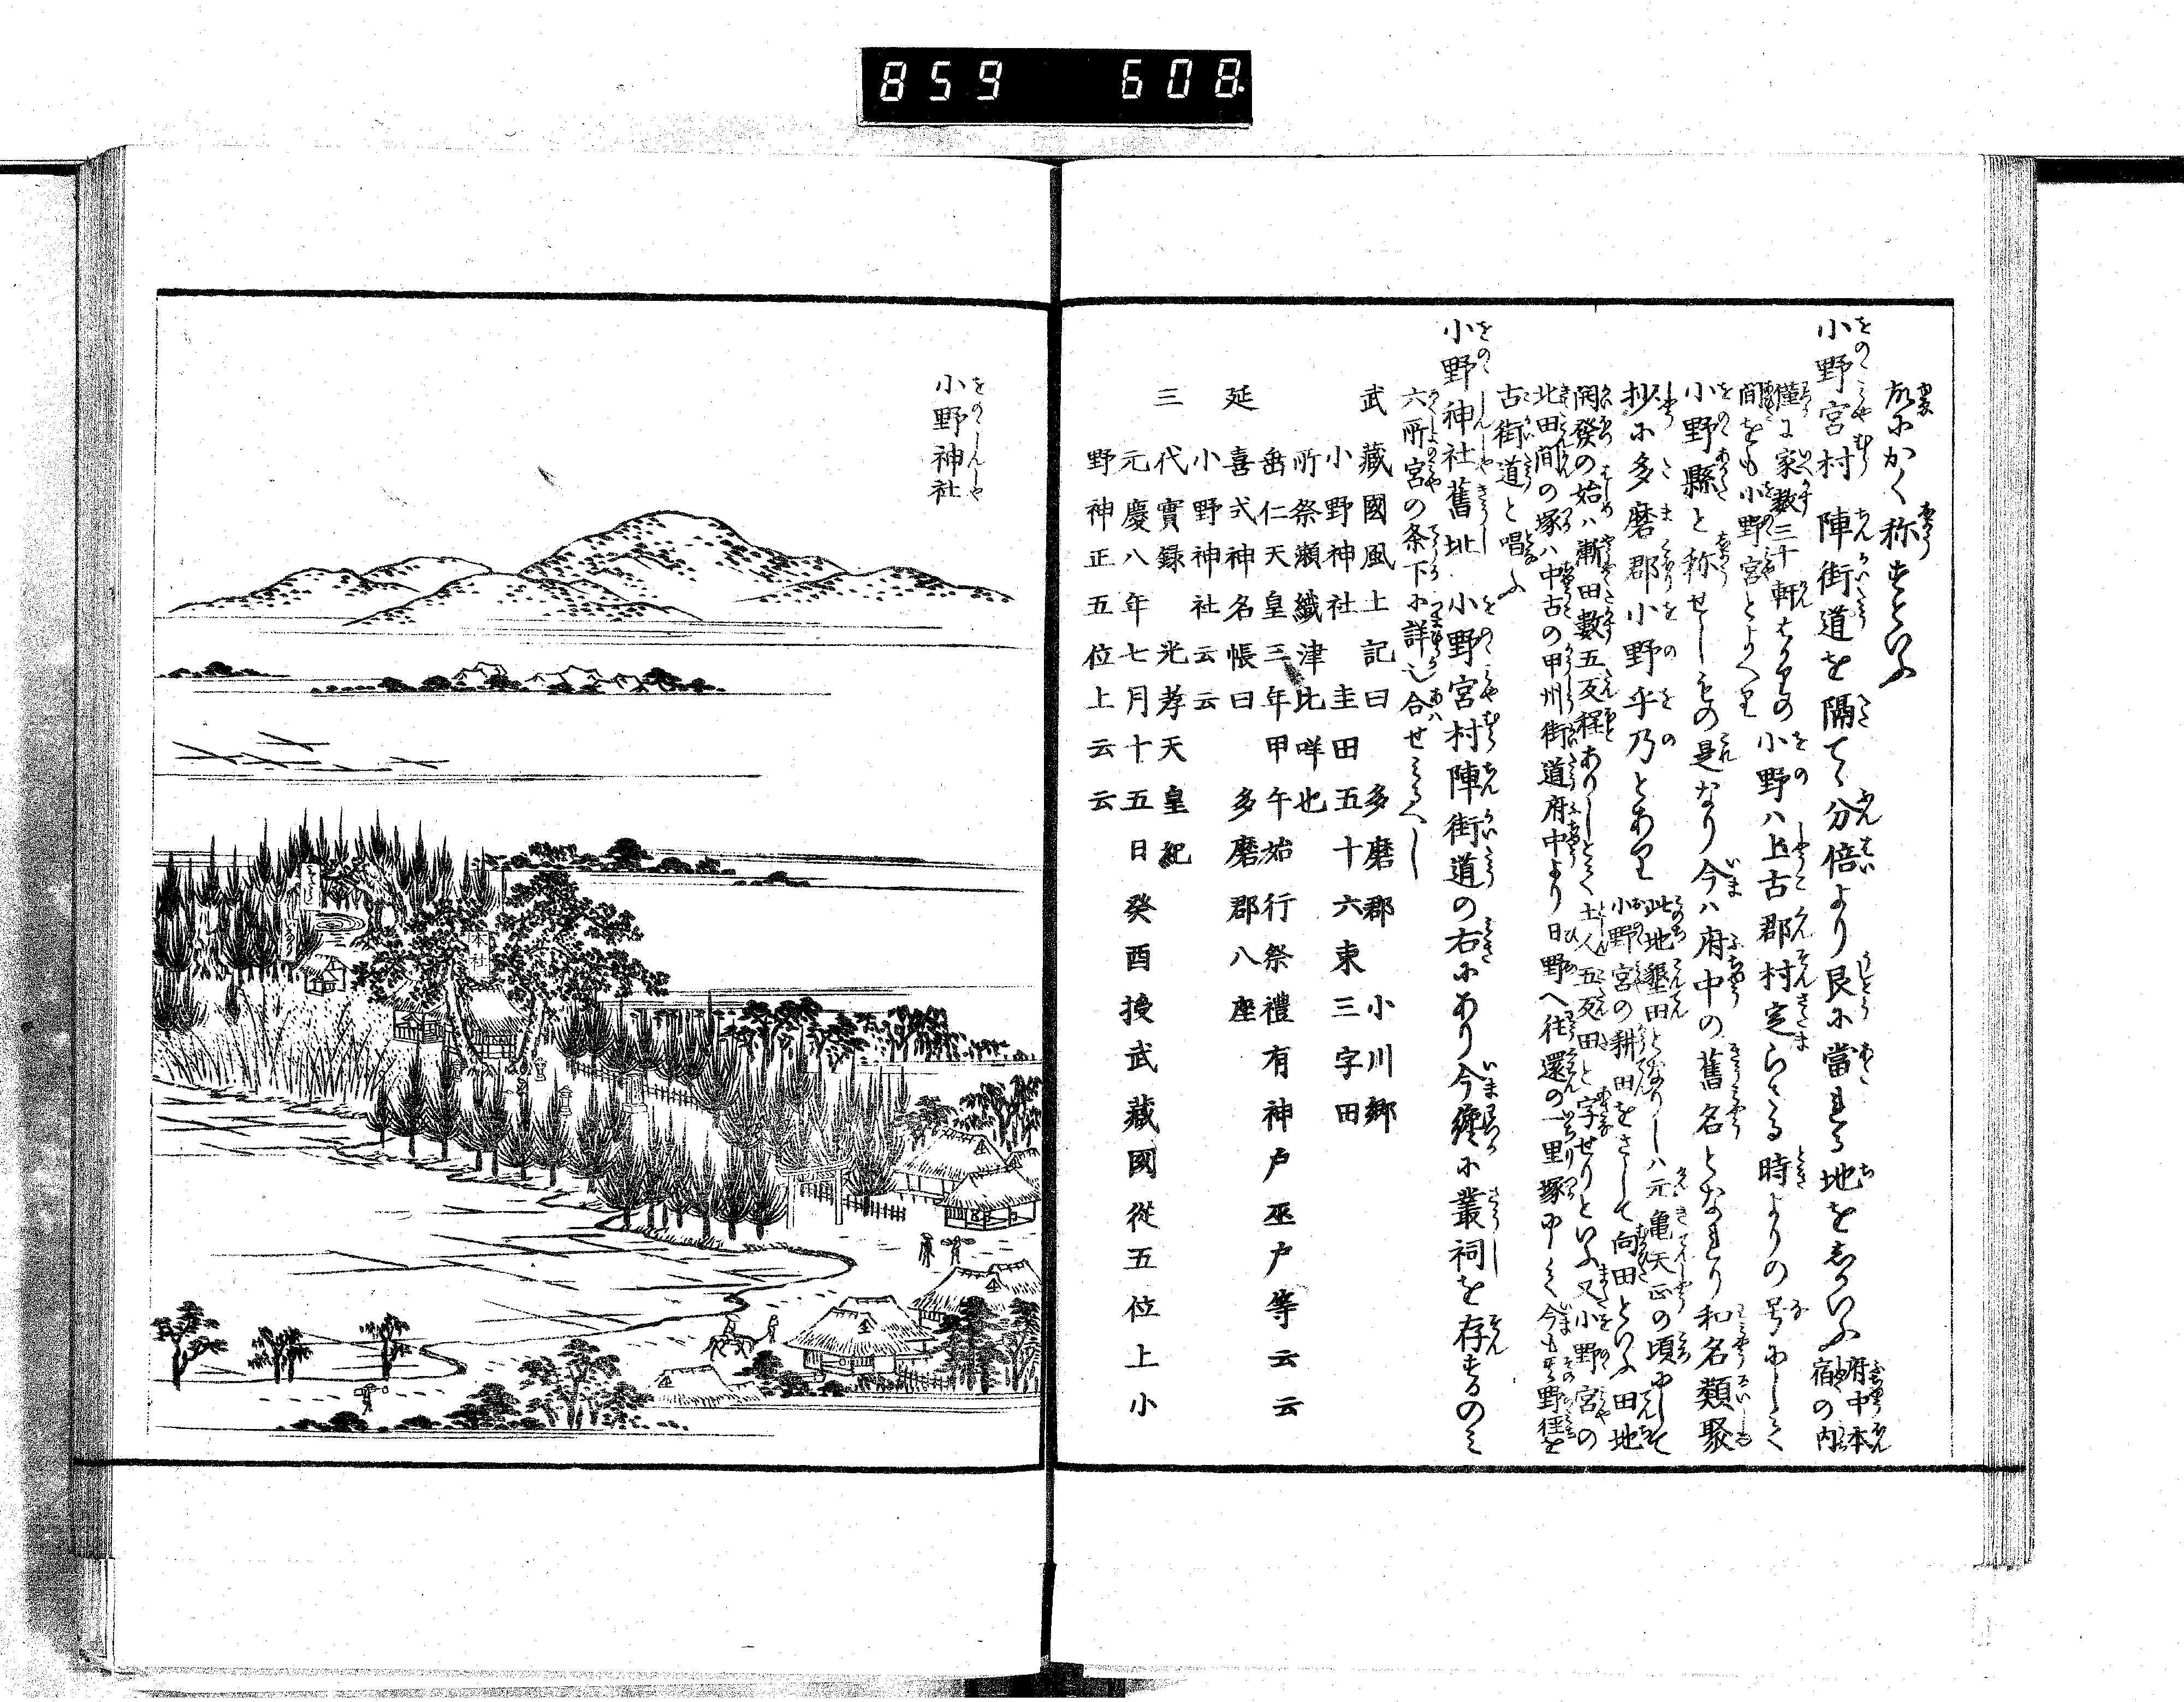 859 608
故にかく称すといふ
小野宮村 陣街道を隔てゝ分倍より艮に當れる地をしかいふ 府中本宿の内
僅に家数三十軒はかりの
間をも小野宮とよへり 小野ハ上古郡村定らさる時よりの号にして
小野縣と称せしもの是なり今ハ府中の舊名となれり和名類聚
抄に多磨郡小野乎乃とあり 此地墾田となりしハ元亀天正の頃にして
小野宮の耕田をさして向田といふ田地
開發の始ハ漸田數五反程ありしとて土人五反田と字せりといふ又小野宮の
北田間の塚ハ中古の甲州街道府中より日野へ往還の一里塚にして今も其野径を
古街道と唱ふ
小野神社舊址 小野宮村陣街道の右にあり今纔に叢祠を存するのミ
六所宮の条下に詳也合せみるへし
武藏國風土記曰 多磨郡小川郷
小野神社 圭田五十六束三字田
所祭瀬織津比咩也
垂仁天皇三年甲午始行祭禮有神戸巫戸等云云
延喜式神名帳曰 多磨郡八座
小野神社云云
三代實録 光孝天皇紀
元慶八年七月十五日癸酉授武藏國從五位上小
野神正五位上云云
小野神社
本社